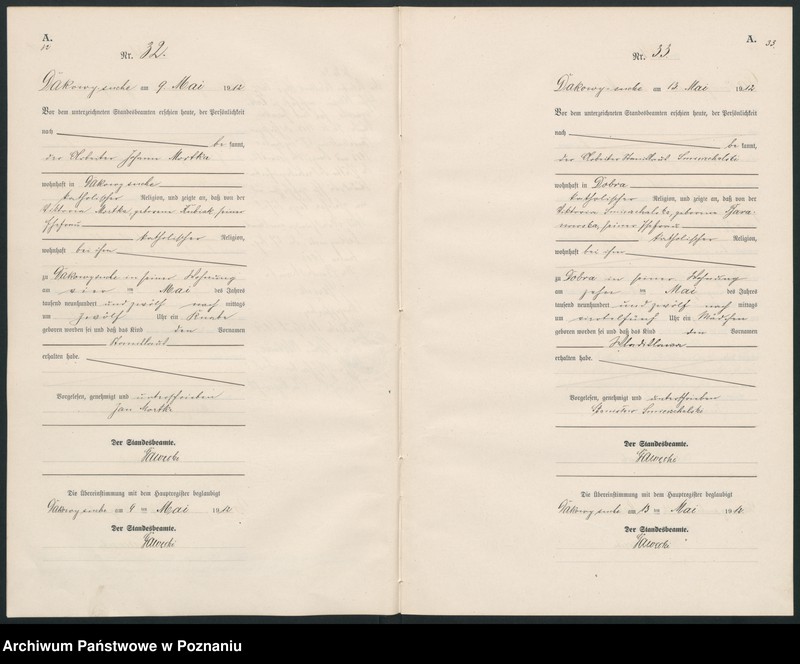 A.
12
Nr. 32.
Dakowy suche am 9 Mai 1912
Vor dem unterzeichneten Standesbeamten erschien heute, der Persönlichkeit
nach
be kannt,
der Arbeiter Johann Mortka
wohnhaft in Dakowy suche
katholischer Religion, und zeigte an, daß von der
Viktoria Mortka, geborene seiner
Ehefrau
katholischer Religion,
wohnhaft bei ihm
zu Dakowysuche in seiner Wohnung
am vier ten Mai des Jahres
tausend neunhundert und zwölf nach mittags
um zwölf Uhr ein Knabe
geboren worden sei und daß das Kind den Vornamen
erhalten habe.
Vorgelesen, genehmigt und unterschrieben
Jan Mortka
Der Standesbeamte.
Die Übereinstimmung mit dem Hauptregister beglaubigt
Dakowy suche am 9 ten Mai 1912
Der Standesbeamte.
A.
33
Nr. 33
Dakowy-suche am 13 Mai 1912
Vor dem unterzeichneten Standesbeamten erschien heute, der Persönlichkeit
nach
be kannt,
der Arbeiter
wohnhaft in Dobra
katholischer Religion, und zeigte an, daß von der
Viktoria geborene
seiner Ehefrau
katholischer Religion,
wohnhaft bei ihm
zu Dobra in seiner Wohnung
am zehn ten Mai des Jahres
tausend neunhundert und zwölf nach mittags
um viertelfünf Uhr ein Mädchen
geboren worden sei und daß das Kind den Vornamen
Wladislawa
erhalten habe.
Vorgelesen, genehmigt und unterschrieben
Der Standesbeamte.
Die Übereinstimmung mit dem Hauptregister beglaubigt
Dakowy suche am 13 ten Mai 1912
Der Standesbeamte.
Archiwum Państwowe w Poznaniu